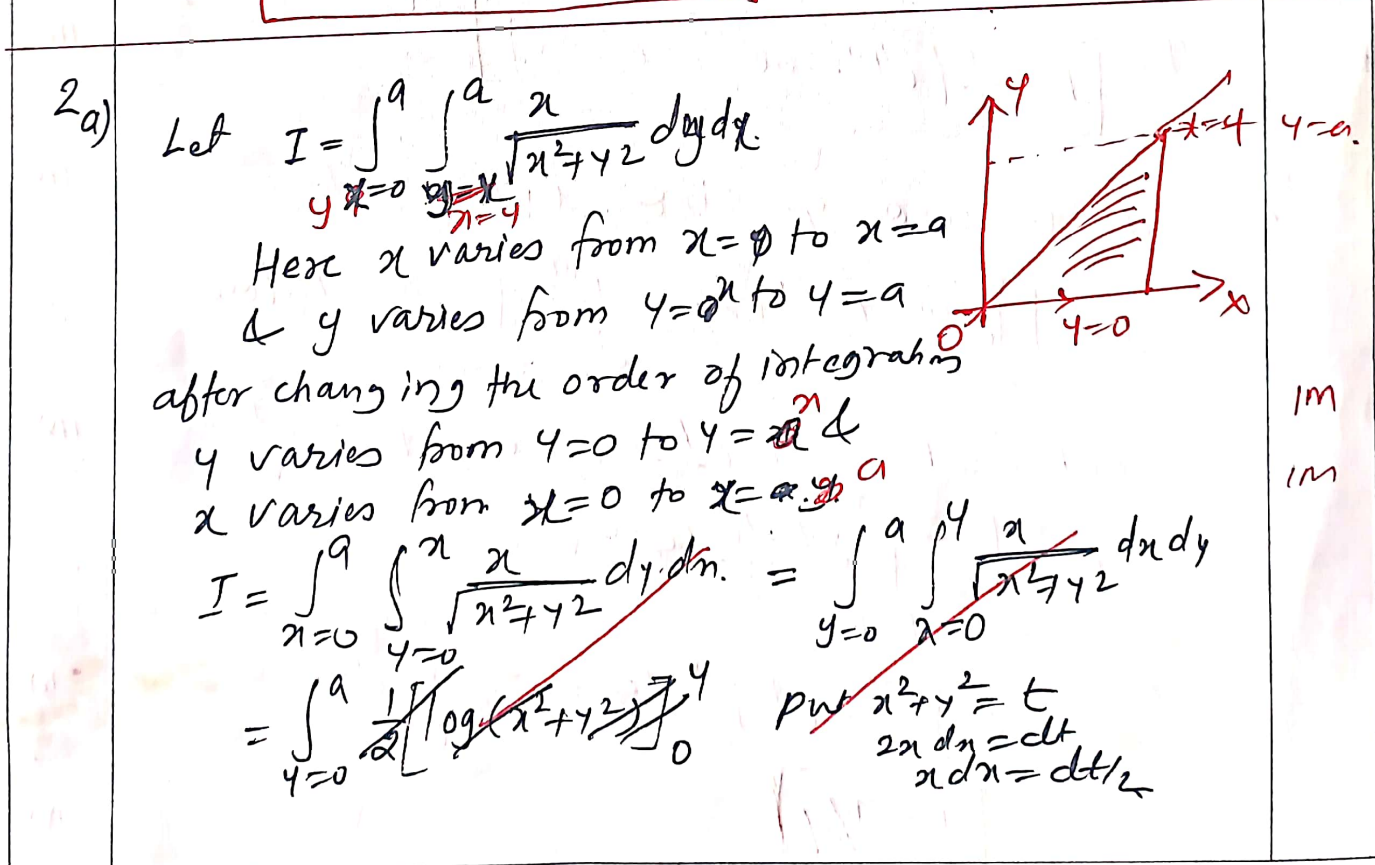 2a)
Let I = ∫_{y=0}^{a} ∫_{x=y}^{a} x/√(x²+y²) dy dx.
Y
x=y
y=a.
Here x varies from x=0 to x=a
& y varies from y=x to y=a
X
O
y=0
after changing the order of integration
1M
y varies from y=0 to y=x &
x varies from x=0 to x=a
1M
I = ∫_{x=0}^{a} ∫_{y=0}^{x} x/√(x²+y²) dy.dx. = ∫_{y=0}^{a} ∫_{x=0}^{y} x/√(x²+y²) dx dy
= ∫_{y=0}^{a} 1/2 [log(x²+y²)]_{0}^{y} put x²+y² = t
2x dx = dt
x dx = dt/2